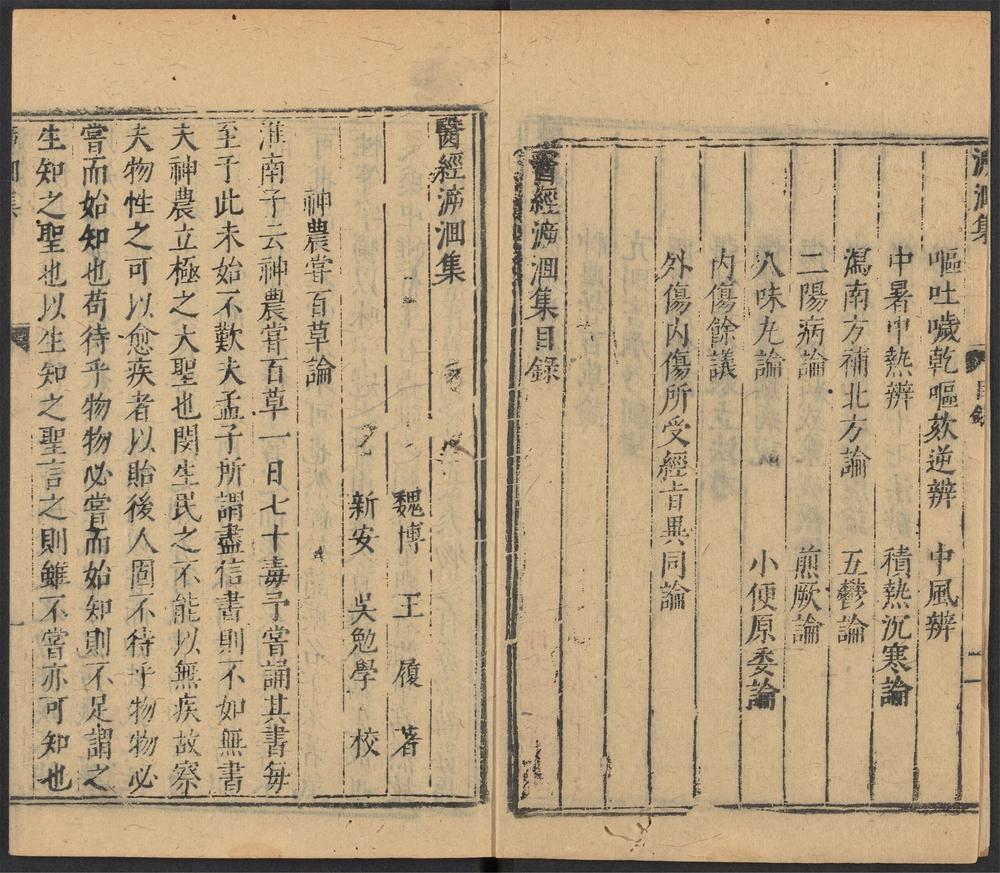 溯洄集
目錄
二
嘔吐噦乾嘔欬逆辨　中風辨
中暑中熱辨　積熱沉寒論
瀉南方補北方論　五鬱論
二陽病論　煎厥論
八味丸論　小便原委論
內傷餘議
外傷內傷所受經旨異同論
醫經溯洄集目錄
醫經溯洄集
魏博王履著
新安吳勉學校
神農嘗百草論
淮南子云神農嘗百草一日七十毒予嘗誦其書每
至于此未始不歎夫孟子所謂盡信書則不如無書
夫神農立極之大聖也閔生民之不能以無疾故察
夫物性之可以愈疾者以貽後人固不待乎物物必
嘗而始知也苟待乎物物必嘗而始知則不足謂之
生知之聖也以生知之聖言之則雖不嘗亦可知也